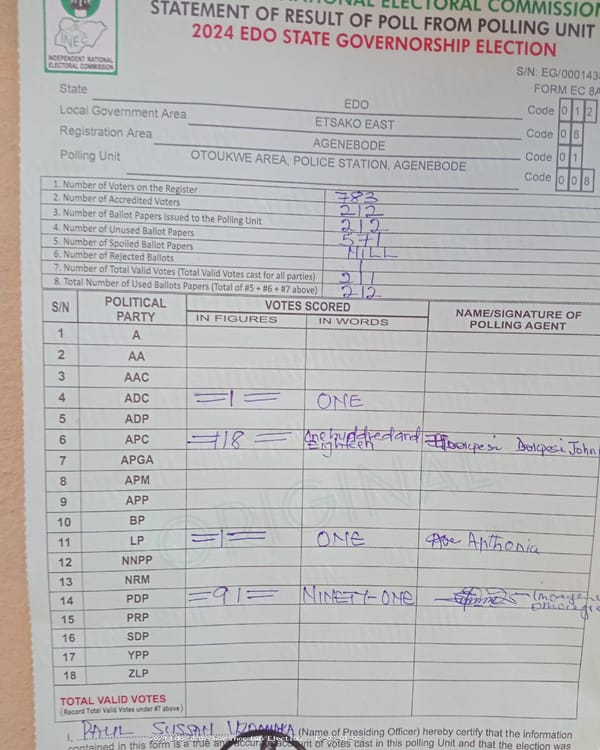 NATIONAL ELECTORAL COMMISSION
STATEMENT OF RESULT OF POLL FROM POLLING UNIT
2024 EDO STATE GOVERNORSHIP ELECTION
INEC
INDEPENDENT NATIONAL
ELECTORAL COMMISSION
S/N: EG/000143
FORM EC 8A
State EDO Code 0 1 2
Local Government Area ETSAKO EAST Code 0 8
Registration Area AGENEBODE Code 0 1
Polling Unit OTOUKWE AREA, POLICE STATION, AGENEBODE Code 0 0 8
1. Number of Voters on the Register 783
2. Number of Accredited Voters 212
3. Number of Ballot Papers Issued to the Polling Unit 212
4. Number of Unused Ballot Papers 571
5. Number of Spoiled Ballot Papers NILL
6. Number of Rejected Ballots 1
7. Number of Total Valid Votes (Total Valid Votes cast for all parties) 211
8. Total Number of Used Ballots Papers (Total of #5 + #6 + #7 above) 212
S/N POLITICAL PARTY VOTES SCORED NAME/SIGNATURE OF POLLING AGENT
IN FIGURES IN WORDS
1 A
2 AA
3 AAC
4 ADC =1= ONE
5 ADP
6 APC =118= One hundred and Eighteen Dorcpesi John
7 APGA
8 APM
9 APP
10 BP
11 LP =1= ONE Anthonia
12 NNPP
13 NRM
14 PDP =91= NINETY-ONE
15 PRP
16 SDP
17 YPP
18 ZLP
ORIGINAL
TOTAL VALID VOTES
(Record Total Valid Votes under #7 above)
I, PAUL SUSSAN UZOAMAKA (Name of Presiding Officer) hereby certify that the information
contained in this form is a true and accurate account of votes cast in this polling Unit and that the election was